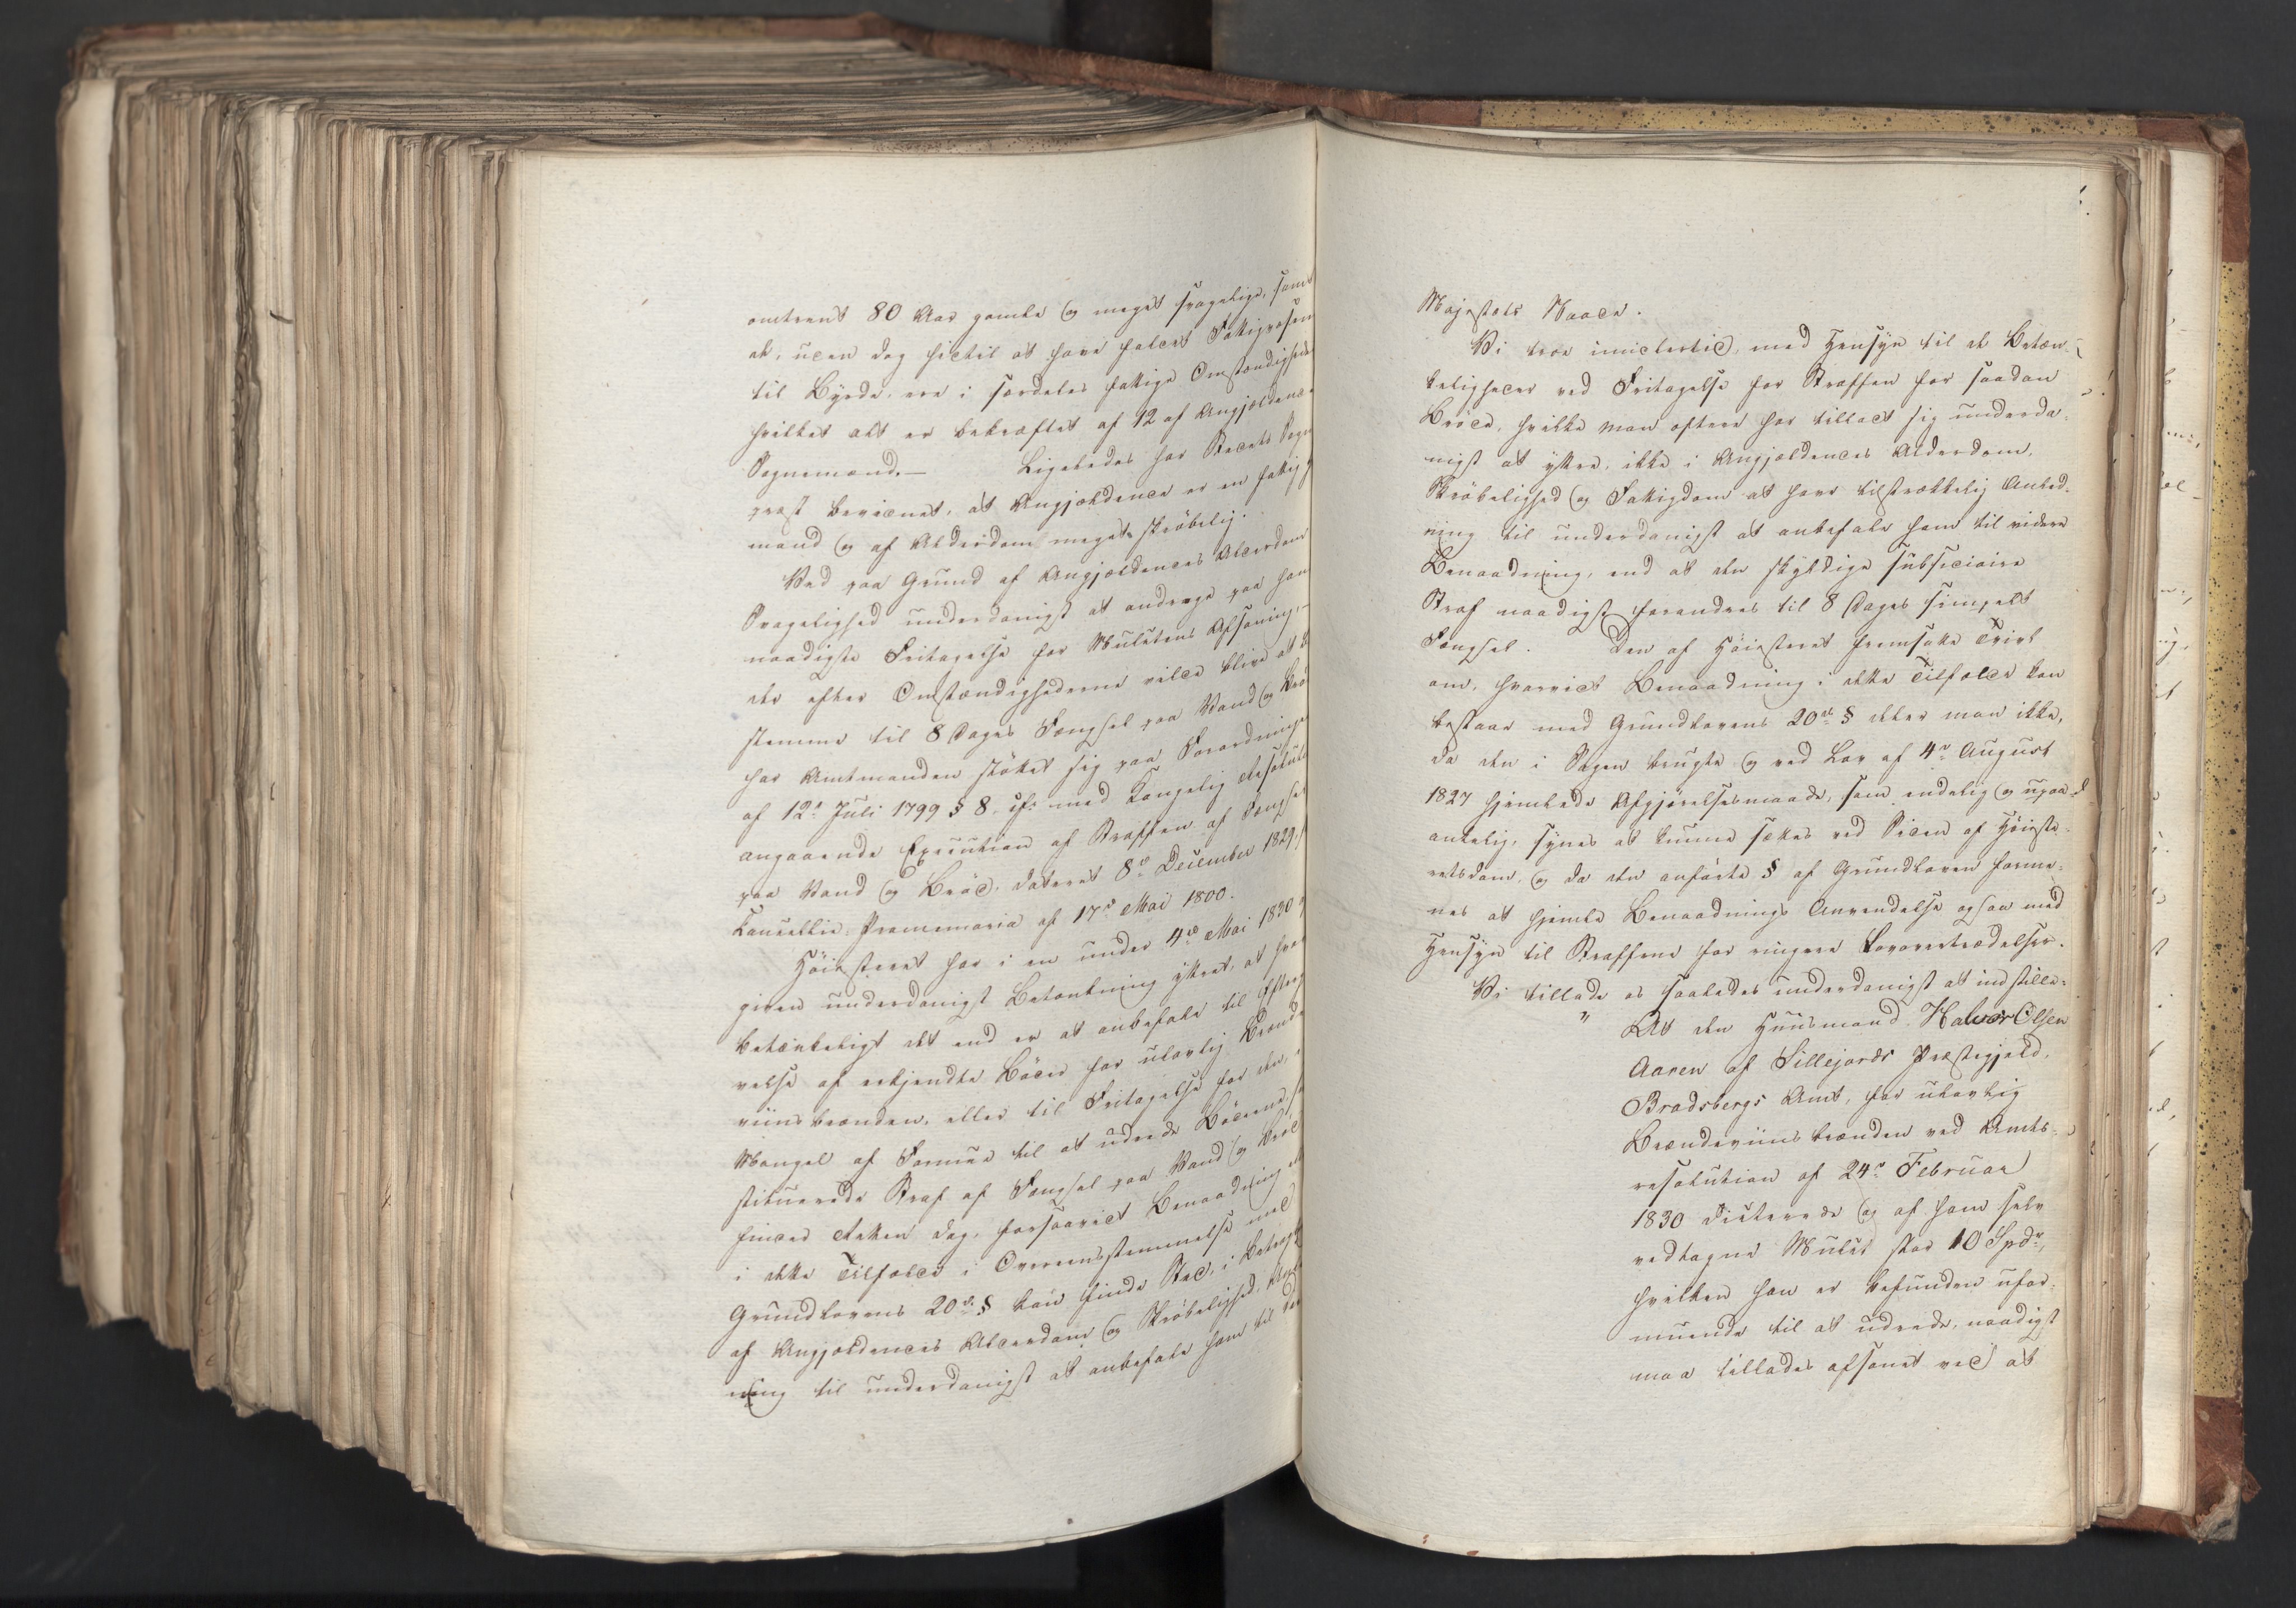 omtrent 80 Aar gamle og meget svagelige, samt
at, uden dog hidtil at have faldet Fattigvæsenet
til Byrde, ere i særdeles fattige Omstændigheder
hvilket alt er bekræftet af 12 af Angjældendes
Sognemænd. — Ligeledes har Stedets Sogne
præst bevidnet, at Angjældende er en fattig
mand og af Alderdom meget skrøbelig.
Ved paa Grund af Angjældendes Alderdom
Svagelighed underdanigst at andrage paa hans
naadigste Fritagelse for Mulctens Afsoning,
der efter Omstændighederne vilde blive at be
stemme til 8 Dages Fængsel paa Vand og Brød
har Amtmanden støttet sig paa Forordningen
af 12te Juli 1799 § 8. cfr. med Kongelig Resolution
angaaende Execution af Straffen af Fængsel
paa Vand og Brød, dateret 8de December 1829,
Cancellie-Promemoria af 17de Mai 1800.
Høiesteret har i en under 4de Mai 1830
given underdanigst Betænkning yttret, at hvor
betænkeligt det end er at anbefale til Efterg
velse af erkjendte Bøder for ulovlig Brænde
viinsbrænden, eller til Fritagelse for den, i
Mangel af Formue til at udrede Bøderne, sub
stituerede Straf af Fængsel paa Vand og Brød
finder Retten dog, forsaavidt Benaadning
i dette Tilfælde i Overeensstemmelse med
Grundlovens 20de § kan finde Sted, i Betragt
af Angjældendes Alderdom og Skrøbelighed,
ning til underdanigst at anbefale ham til
Majestæts Naade.
Vi troe imidlertid, med Hensyn til de Betæn-
keligheder ved Fritagelse for Straffen for saadan
Brøde, hvilke man oftere har tilladt sig underda-
nigst at yttre, ikke i Angjældendes Alderdom,
Skrøbelighed og Fattigdom at have tilstrækkelig Anled-
ning til underdanigst at anbefale ham til videre
Benaadning, end at den skyldige subsidiaire
Straf naadigst forandres til 8 Dages simpelt
Fængsel. Den af Høiesteret fremsatte Tvivl
om, hvorvidt Benaadning i dette Tilfælde kan
bestaae med Grundlovens 20de § deler man ikke,
da den i Sagen brugte og ved Lov af 4de August
1827 hjemlede Afgjørelsesmaade, som endelig og upaa-
ankelig, synes at kunne sættes ved Siden af Høieste-
retsdom, og da den anførte § af Grundloven forme-
nes at hjemle Benaadnings Anvendelse ogsaa med
Hensyn til Straffene for ringere Lovovertrædelser.
Vi tillade os saaledes underdanigst at indstille:
" At den Huusmand Halvor Olsen
Aaren af Sillejords Præstegjeld,
Bradsbergs Amt, for ulovlig
Brændeviinsbrænden ved Amts-
resolution af 24de Februar
1830 dicterede og af ham selv
vedtagne Mulct stor 10 Spdr,
hvilken han er befunden ufor-
muende til at udrede, naadigst
maa tillades afsonet ved at